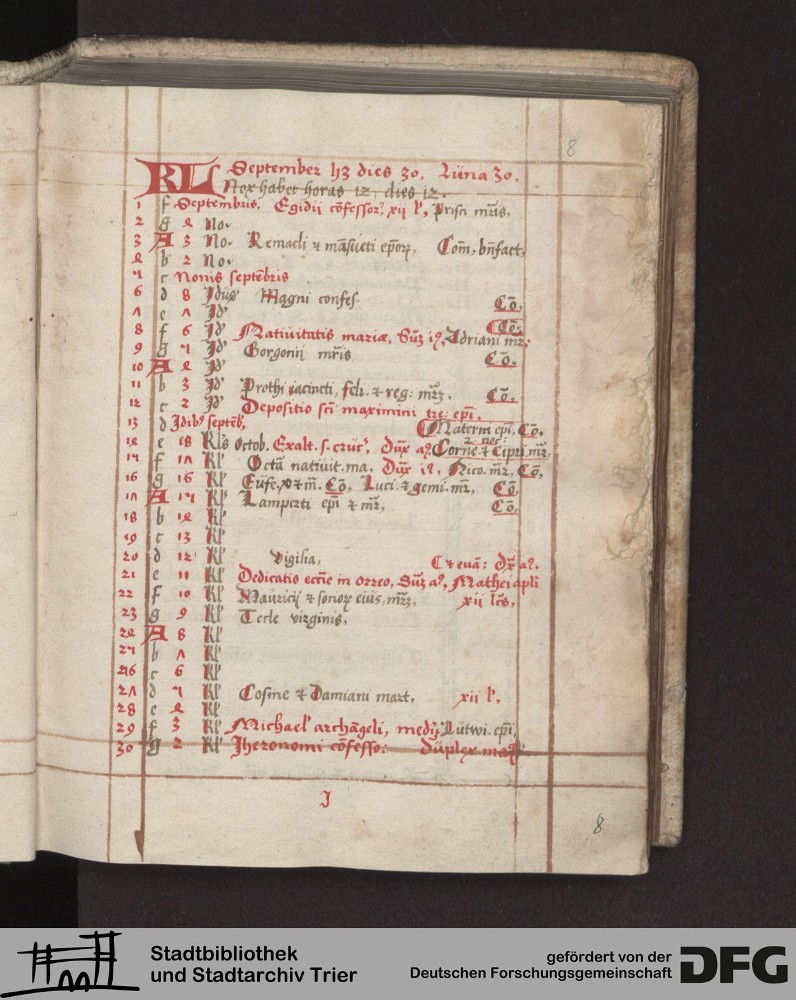 8
KL September hz dies 30. Luna 30.
Nox habet horas 12, dies 12.
1 f Septembris. Egidii cōfessor? xij l', Prisci mr̄is.
2 g 4 No.
3 A 3 No. Remacli ⁊ māsueti ep̄orꝫ. Com, bn̄fact,
4 b 2 No.
5 c Nonis septēbris
6 d 8 Idus Magni confes. Cō.
7 e 7 Id'
8 f 6 Id' Natiuitatis mariæ. Adriani mr̄. Cō.
9 g 5 Id' Gorgonij mr̄is Cō.
10 A 4 Id'
11 b 3 Id' Prothi iacincti, feli. ⁊ reg: Cō.
12 c 2 Id' Depositio sc̄i maximini tre: ep̄i.
13 d Idib' septēb, Materni ep̄i, Cō.
14 e 18 Kl's Octob. Exalt. s. cruc', Corne. ⁊ Cipri. mr̄.
15 f 17 Kl' Octā natiuit. ma. Nico. mr̄. Cō,
16 g 16 Kl' Eufe. Cō, Luci. ⁊ gemi. mr̄, Cō
17 A 15 Kl' Lamperti ep̄i ⁊ mr̄, Cō.
18 b 14 Kl'
19 c 13 Kl'
20 d 12 Kl' Vigilia,
21 e 11 Kl' Dedicatio eccīe in orreo, Mathei apli
22 f 10 Kl' Mauricij ⁊ sociorꝫ eius, xij lc̄s.
23 g 9 Kl' Tecle virginis,
24 A 8 Kl'
25 b 7 Kl'
26 c 6 Kl'
27 d 5 Kl' Cosme ⁊ Damiani mart, xij l'.
28 e 4 Kl'
29 f 3 Kl' Michael' archāgeli, Lutwi. ep̄i,
30 g 2 Kl' Jheronomi cōfesso: Duplex
J
8
Stadtbibliothek
und Stadtarchiv Trier
gefördert von der
Deutschen Forschungsgemeinschaft
DFG